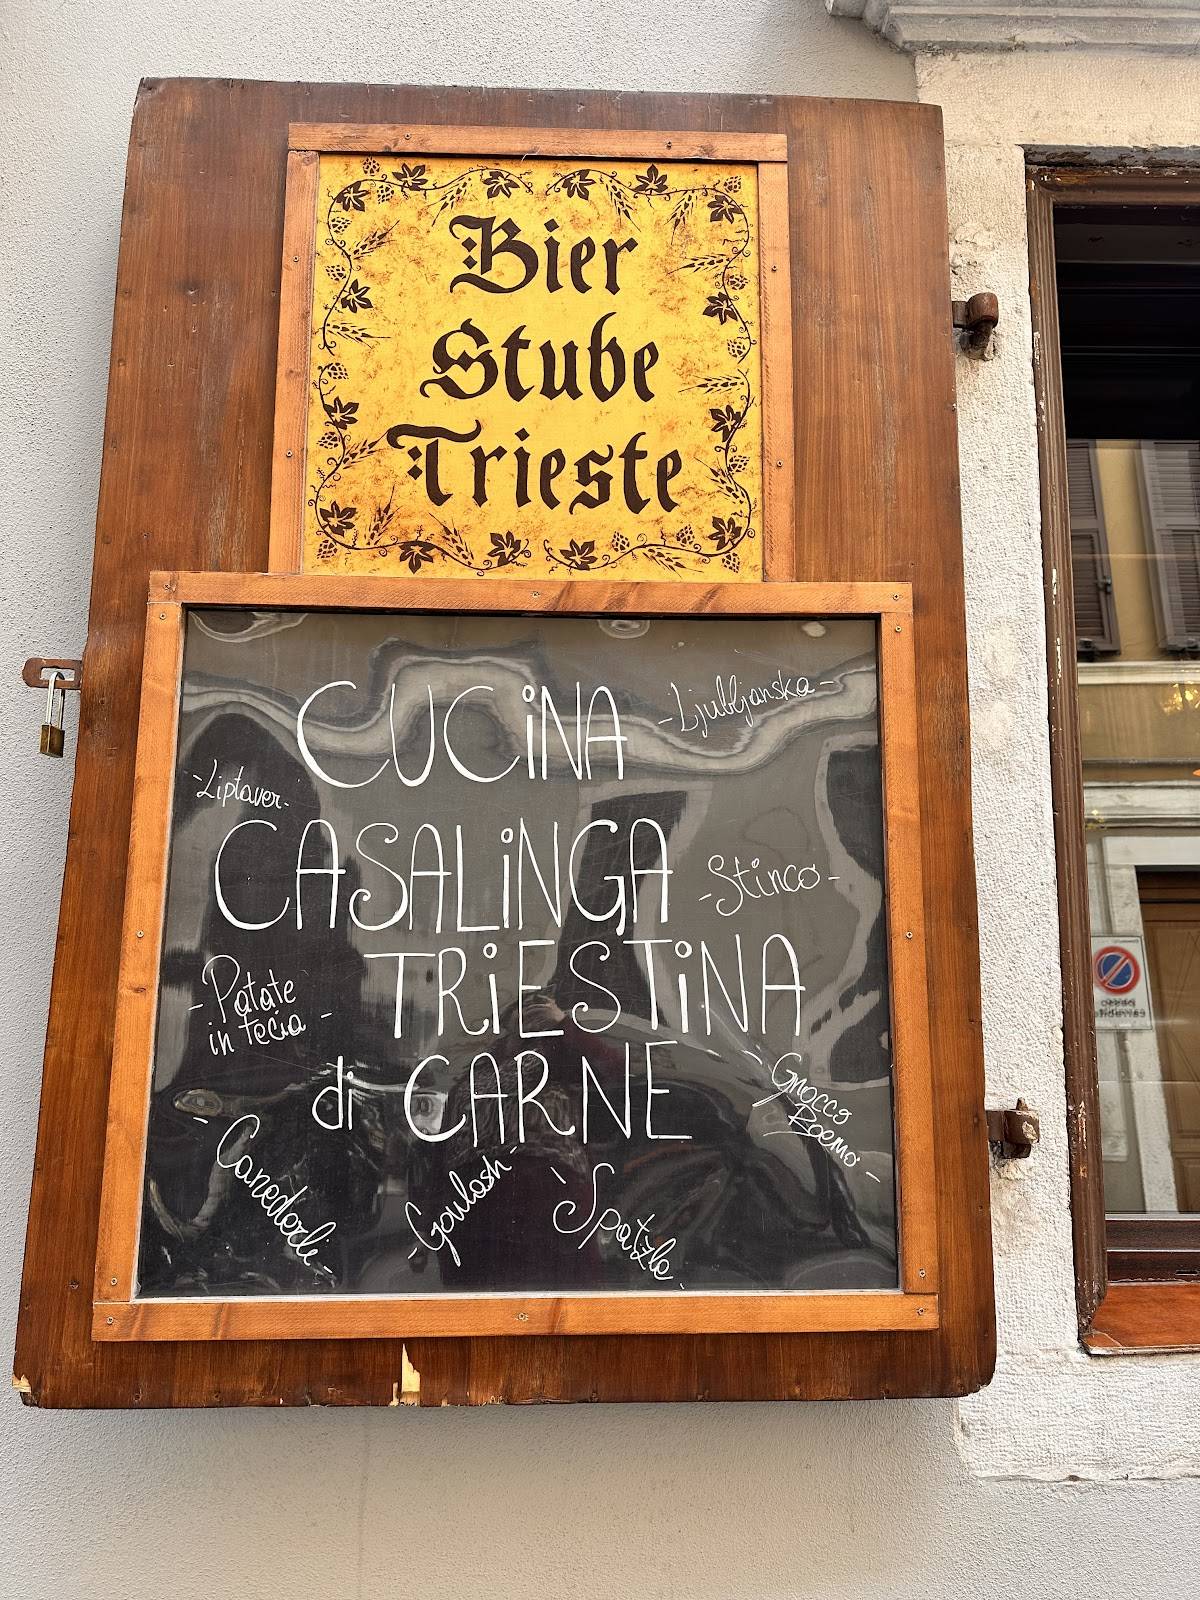 Bier
Stube
Trieste
CUCiNA
-Ljubljanska-
-Liptaver-
CASALiNGA
-Stinco-
TRiESTiNA
-Patate
in tecia-
di CARNE
-Gnocco
Boemo-
-Canederli-
-Goulash-
-Spatzle-